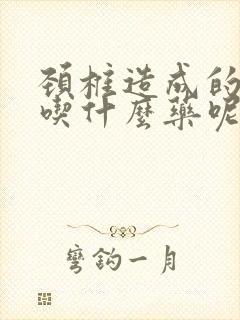 頚柱造成的
喫什麼藥呢
彎鈎一月